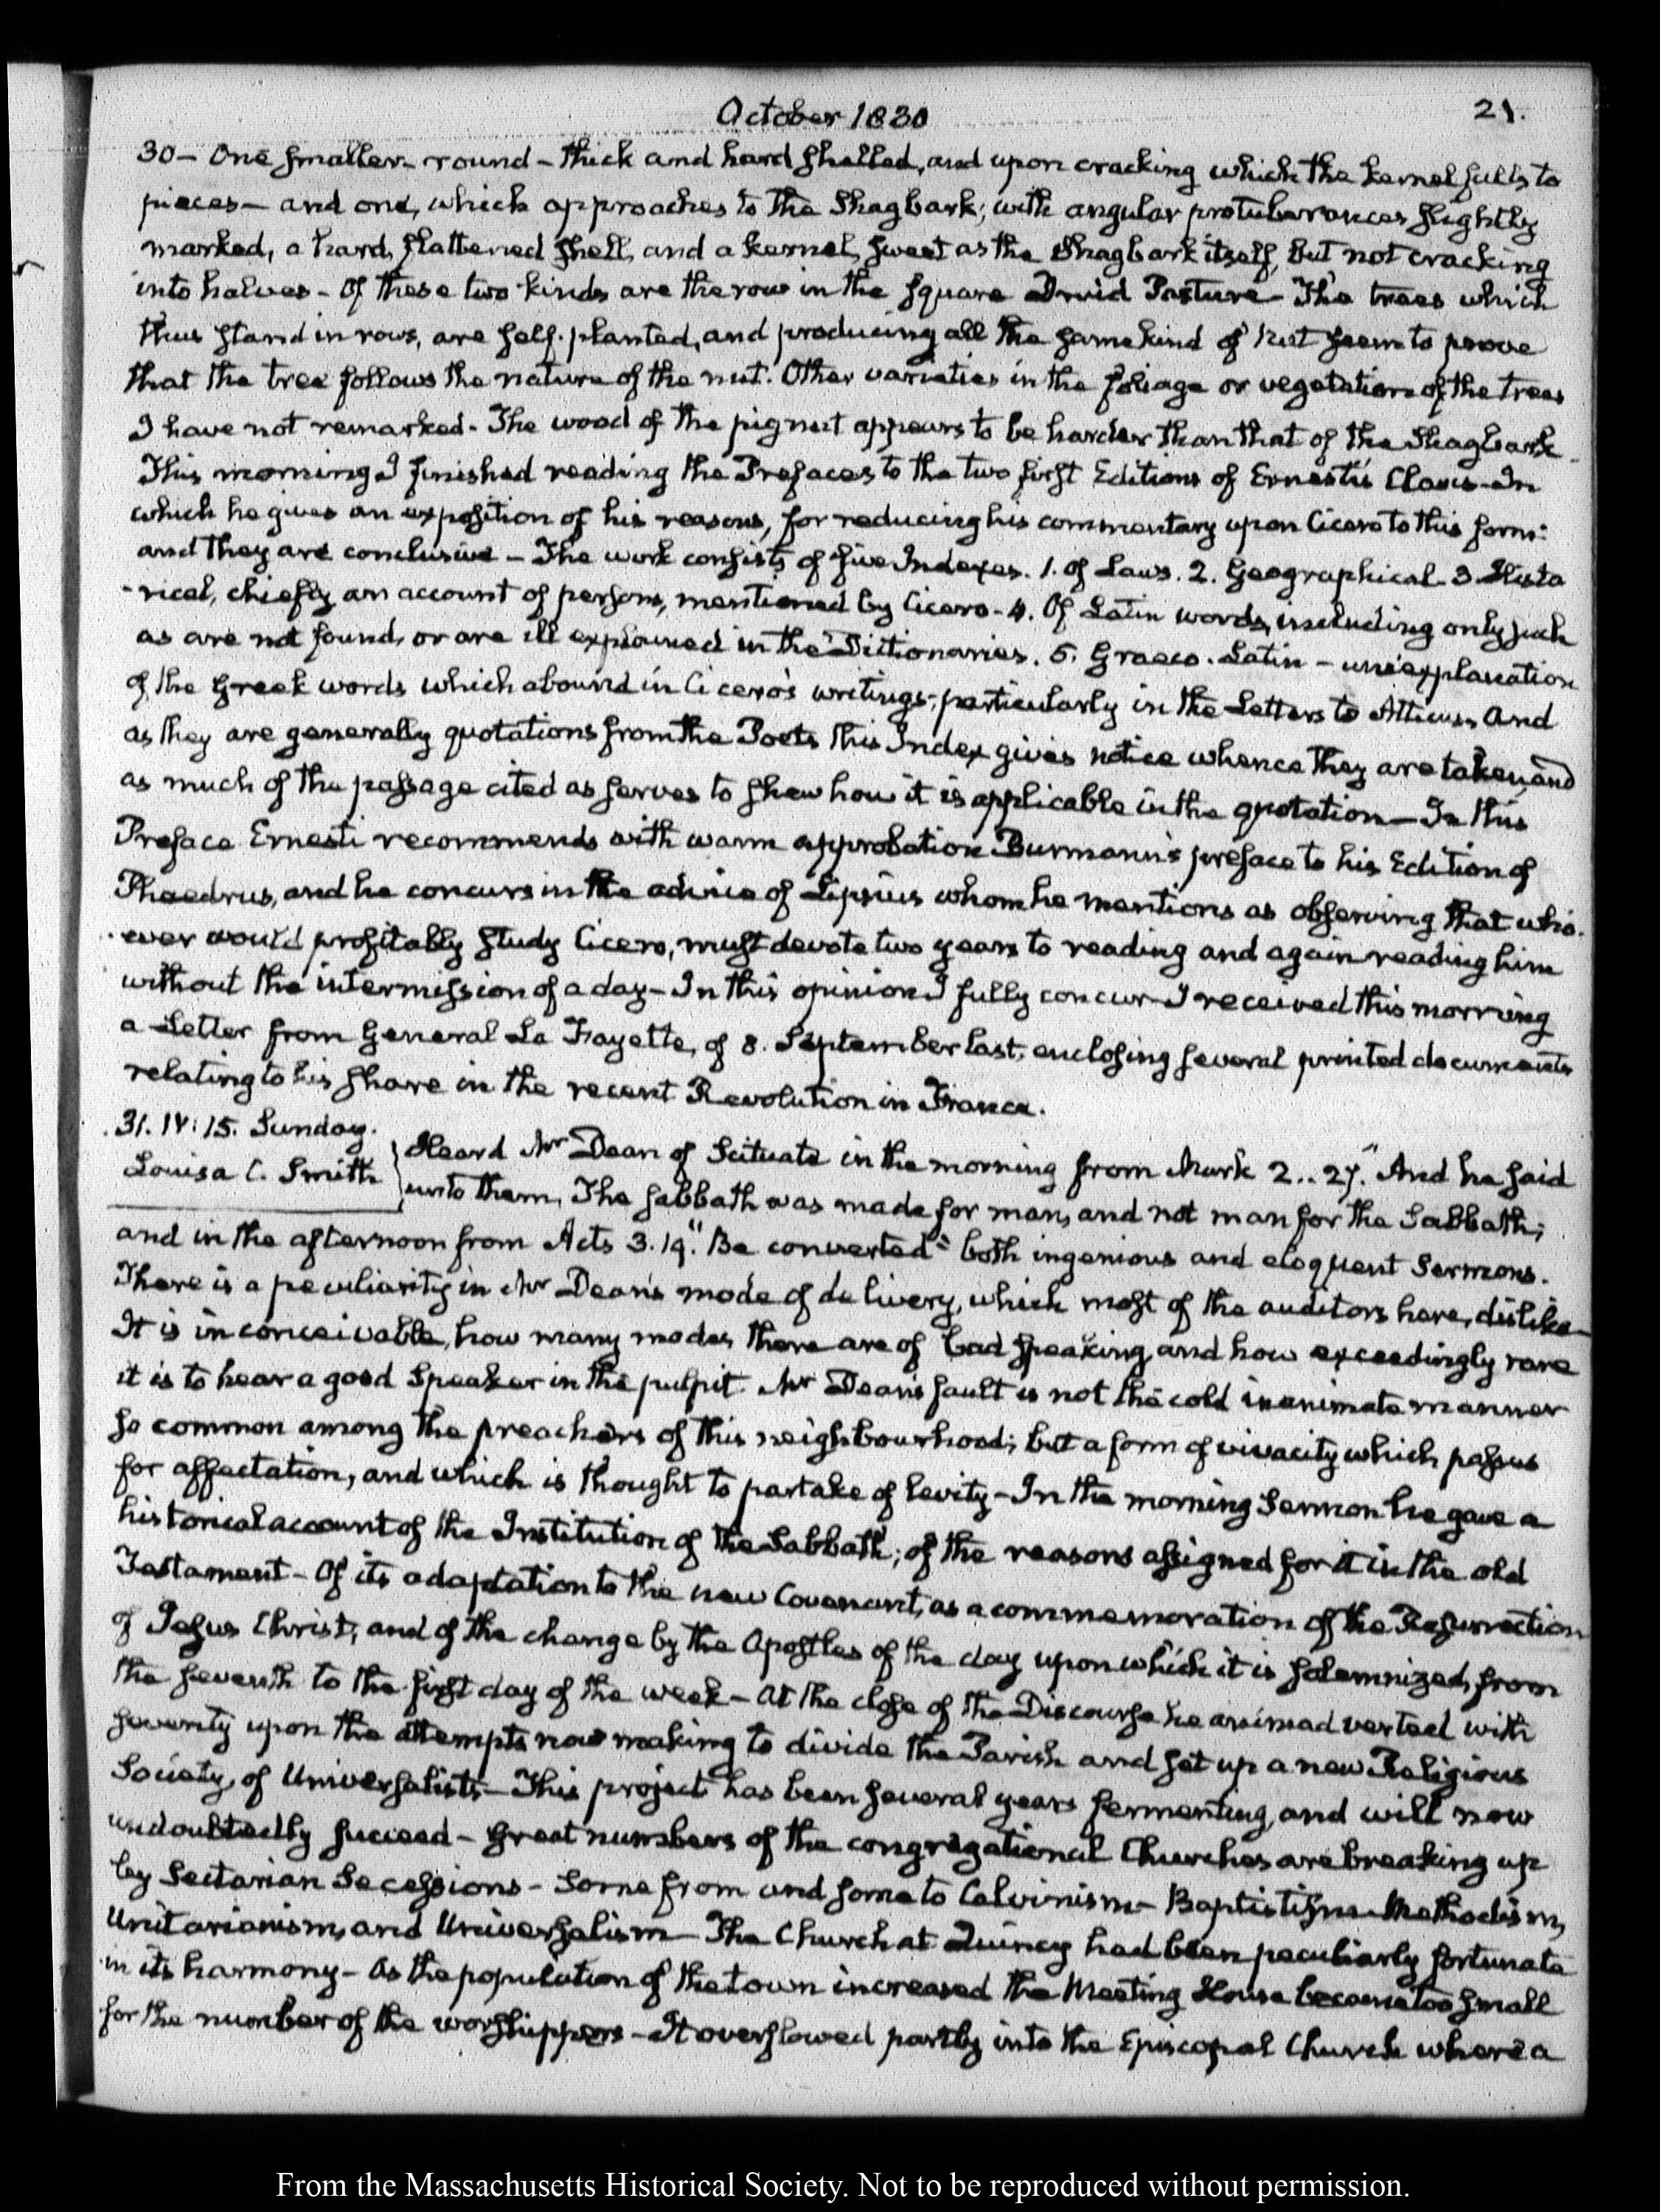 October 1830
21.
30 – One smaller – round – thick and hard shelled, and upon cracking which the kernel falls to
pieces – and one, which approaches to the Shagbark; with angular protuberances slightly
marked, a hard, flattened shell, and a kernel, sweet as the Shagbark itself, but not cracking
into halves – Of these two kinds are the row in the square Druid Pasture – The trees which
thus stand in rows, are self-planted, and producing all the same kind of Nut seem to prove
that the tree follows the nature of the nut. Other varieties in the foliage or vegetation of the trees
I have not remarked – The wood of the pignut appears to be harder than that of the Shagbark.
This morning I finished reading the Prefaces to the two first Editions of Ernesti's Clavis – In
which he gives an exposition of his reasons, for reducing his commentary upon Cicero to this form:
and they are conclusive – The work consists of five Indexes. 1. of Laws. 2. Geographical. 3 Histo
-rical, chiefly an account of persons, mentioned by Cicero – 4. Of Latin words, including only such
as are not found, or are ill explained in the Dictionaries. 5. Graeco-Latin – an explanation
of the Greek words which abound in Cicero's writings; particularly in the Letters to Atticus. And
as they are generally quotations from the Poets this Index gives notice whence they are taken, and
as much of the passage cited as serves to shew how it is applicable in the quotation – In this
Preface Ernesti recommends with warm approbation Burmann's preface to his Edition of
Phaedrus, and he concurs in the advice of Lipsius whom he mentions as observing that who-
-ever would profitably study Cicero, must devote two years to reading and again reading him
without the intermission of a day – In this opinion I fully concur – I received this morning
a Letter from General La Fayette, of 8. September last, enclosing several printed documents
relating to his share in the recent Revolution in France.
31. IV: 15. Sunday.
Louisa C. Smith
Heard Mr Dean of Scituate in the morning from Mark 2..27. "And he said
unto them, The Sabbath was made for man, and not man for the Sabbath;
and in the afternoon from Acts 3.19. "Be converted" both ingenious and eloquent Sermons.
There is a peculiarity in Mr Dean's mode of delivery, which most of the auditors here, dislike –
It is inconceivable, how many modes there are of bad speaking, and how exceedingly rare
it is to hear a good Speaker in the pulpit. Mr Dean's fault is not the cold inanimate manner
so common among the preachers of this neighbourhood; but a form of vivacity which passes
for affectation, and which is thought to partake of levity – In the morning Sermon he gave a
historical account of the Institution of the Sabbath; of the reasons assigned for it in the old
Testament – Of its adaptation to the new Covenant, as a commemoration of the Resurrection
of Jesus Christ; and of the change by the Apostles of the day upon which it is solemnized, from
the seventh to the first day of the week – At the close of the Discourse he animadverted with
severity upon the attempts now making to divide the Parish and set up a new Religious
Society, of Universalists – This project has been several years fermenting, and will now
undoubtedly succeed – Great numbers of the congregational Churches are breaking up
by Sectarian Secessions – Some from and some to Calvinism – Baptistism – Methodism,
Unitarianism, and Universalism – The Church at Quincy had been peculiarly fortunate
in its harmony – As the population of the town increased the Meeting House became too small
for the number of the worshippers – It overflowed partly into the Episcopal Church where a
From the Massachusetts Historical Society. Not to be reproduced without permission.